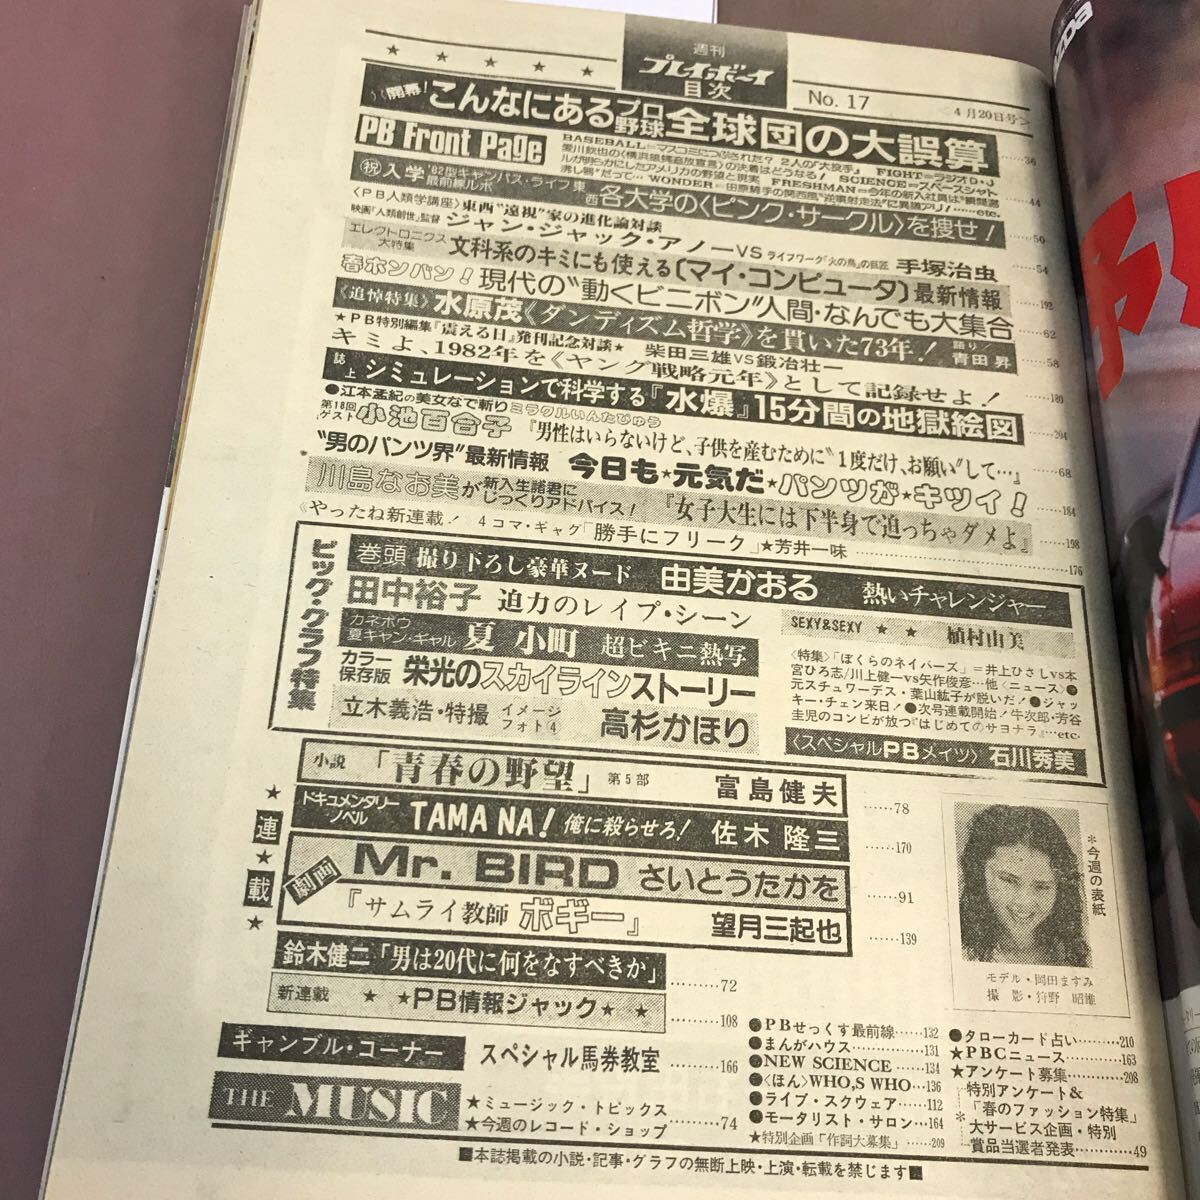 週刊
プレイボーイ
目次
No. 17
<4月20日号>
開幕!こんなにあるプロ野球全球団の大誤算……36
PB Front Page
BASEBALL=マスコミにつぶされた?2人の"大投手" FIGHT=ラジオD・J
愛川欽也の〈横浜銀蝿追放宣言〉の決着はどうなる! SCIENCE=スペースシャト
ルが明らかにしたアメリカの野望と現実 FRESHMAN=今年の新入社員は"瞬間湯
沸し器"だって… WONDER=田原騎手の関西風"逆噴射走法"に異議アリ!……etc.
……44
㊗入学 '82型キャンパス・ライフ 最前線ルポ 東西各大学の〈ピンク・サークル〉を捜せ!……50
〈PB人類学講座〉東西"遠視"家の進化論対談
映画『人類創世』監督 ジャン・ジャック・アノーVS ライフワーク『火の鳥』の巨匠 手塚治虫……54
エレクトロニクス大特集 文科系のキミにも使える〔マイ・コンピュータ〕最新情報……192
春ホンバン!現代の"動くビニボン"人間・なんでも大集合……62
〈追悼特集〉水原茂《ダンディズム哲学》を貫いた73年! 語り/青田昇……58
★PB特別編集『震える日』発刊記念対談★ 柴田三雄VS鍛冶壮一
キミよ、1982年を《ヤング戦略元年》として記録せよ!……180
誌上シミュレーションで科学する『水爆』15分間の地獄絵図……204
●江本孟紀の美女なで斬りミラクルいんたびゅう
第18回ゲスト 小池百合子『男性はいらないけど、子供を産むために"1度だけ、お願い"して…』……68
"男のパンツ界"最新情報 今日も★元気だ★パンツが★キツイ!……184
川島なお美が新入生諸君にじっくりアドバイス!『女子大生には下半身で迫っちゃダメよ』……198
《やったね新連載!》4コマ・ギャグ「勝手にフリーク」★芳井一味……176
ビッグ・グラフ特集
巻頭 撮り下ろし豪華ヌード 由美かおる 熱いチャレンジャー
田中裕子 迫力のレイプ・シーン
カネボウ夏キャン・ギャル 夏 小町 超ビキニ熱写
カラー保存版 栄光のスカイラインストーリー
立木義浩・特撮 イメージフォト4 高杉かほり
SEXY&SEXY ★ ★ 植村由美
〈特集〉「ぼくらのネイバーズ」=井上ひさしvs本
宮ひろ志/川上健一vs矢作俊彦…他〈ニュース〉●
元スチュワーデス・葉山紘子が脱いだ!●ジャッ
キー・チェン来日!●次号連載開始!牛次郎・芳谷
圭児のコンビが放つ『はじめてのサヨナラ』…etc.
〈スペシャルPBメイツ〉石川秀美
★連★載★
小説「青春の野望」第5部 富島健夫……78
ドキュメンタリーノベル TAMA NA! 俺に殺らせろ! 佐木隆三……170
劇画
Mr. BIRD さいとうたかを……91
『サムライ教師 ボギー』 望月三起也……139
鈴木健二「男は20代に何をなすべきか」……72
新連載 ★ ★PB情報ジャック★ ★……108
*今週の表紙
モデル・岡田ますみ
撮影・狩野 昭雄
ギャンブル・コーナー スペシャル馬券教室……166
THE MUSIC
★ミュージック・トピックス
★今週のレコード・ショップ……74
●PBせっくす最前線……132
●まんがハウス……131
●NEW SCIENCE……134
●〈ほん〉WHO,S WHO…136
●ライブ・スクウェア……112
●モータリスト・サロン…164
★特別企画「作詞大募集」……209
●タローカード占い……210
★PBCニュース……163
★アンケート募集……208
*特別アンケート&
「春のファッション特集」
大サービス企画・特別
賞品当選者発表……49
■本誌掲載の小説・記事・グラフの無断上映・上演・転載を禁じます■